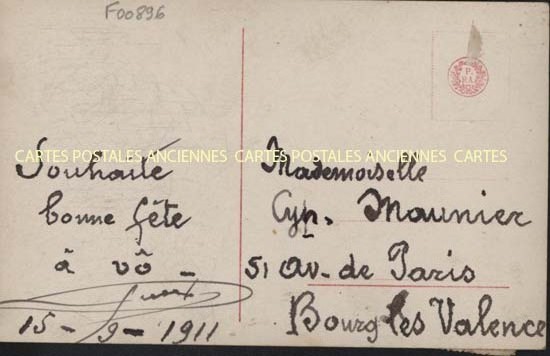 F00896
P.
CARTES POSTALES ANCIENNES CARTES POSTALES ANCIENNES CARTES
Souhaite
bonne fête
à vô -
15-9-1911
Mademoiselle
Cyp. Maunier
51 av. de Paris
Bourg les Valence